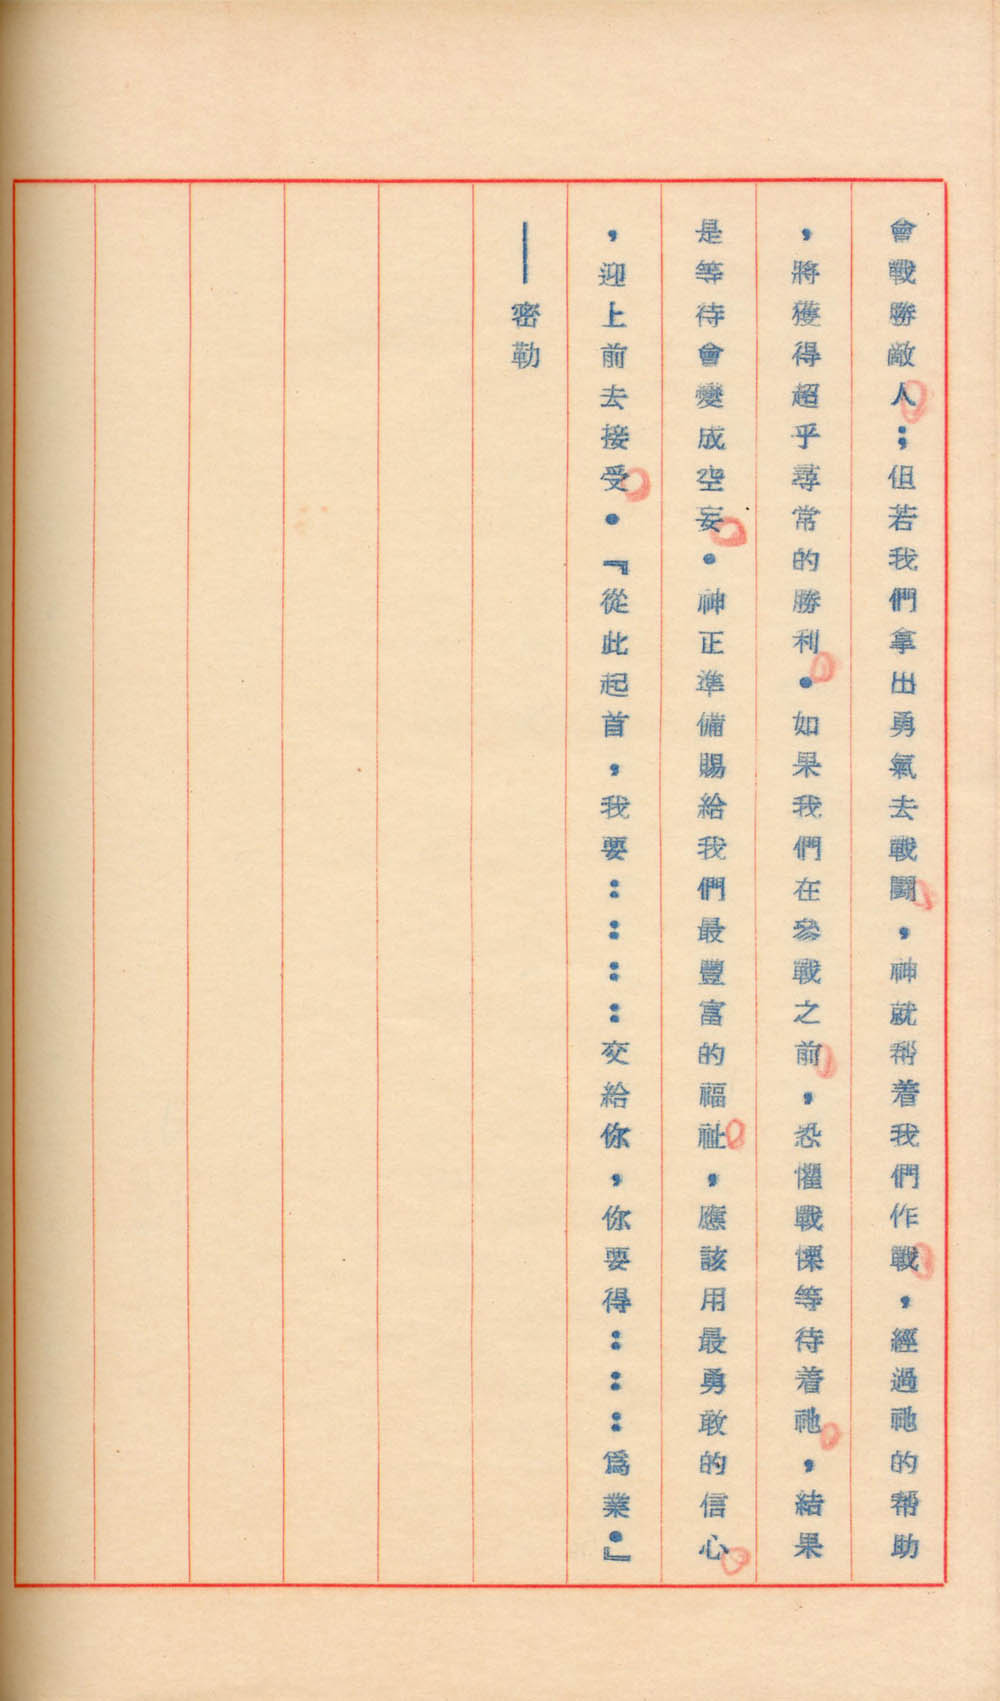 會戰勝敵人；但若我們拿出勇氣去戰鬪，神就幇着我們作戰，經過祂的帮助
，將獲得超乎尋常的勝利．如果我們在參戰之前，恐懼戰慄等待着祂，結果
是等待會變成空妄．神正準備賜給我們最豐富的福祉，應該用最勇敢的信心
，迎上前去接受．『從此起首，我要：：：：交給你，你要得：：：為業．』
——密勒